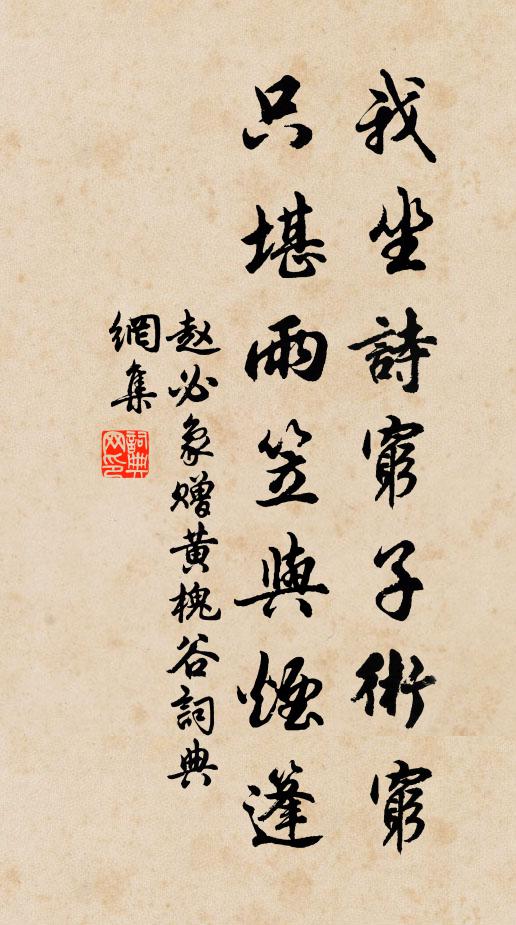 我坐詩窮子術窮
只堪雨笠與煙篷
赵必象赠黄槐谷詞典
網集
詞典
网印